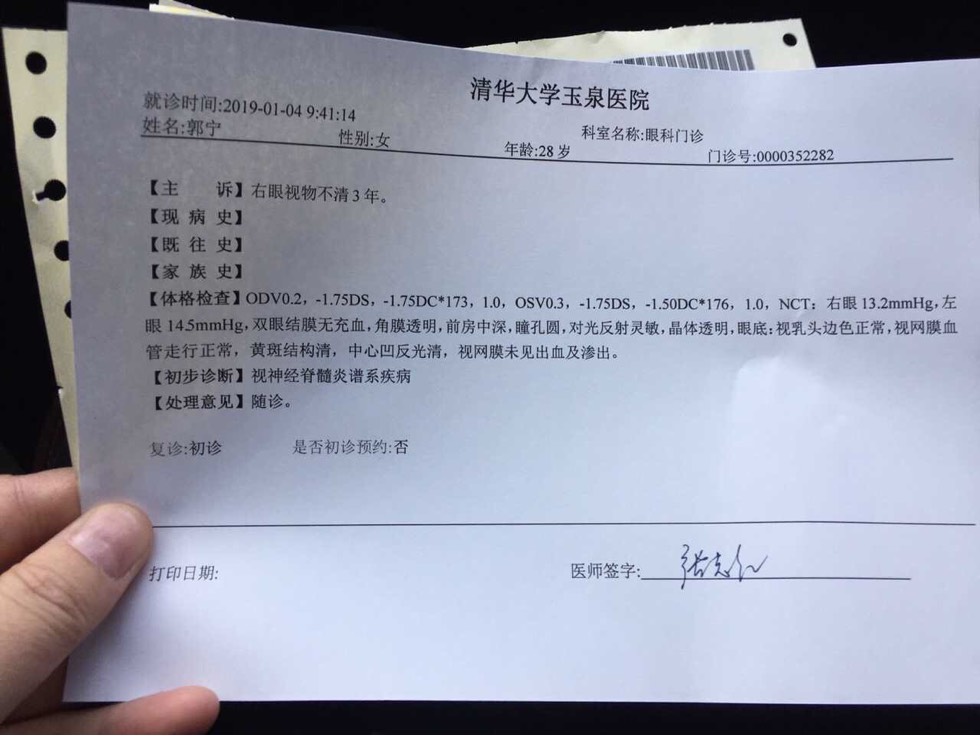 清华大学玉泉医院
就诊时间:2019-01-04 9:41:14
姓名:郭宁 性别:女 年龄:28 岁 科室名称:眼科门诊 门诊号:0000352282
【主 诉】右眼视物不清 3 年。
【现 病 史】
【既 往 史】
【家 族 史】
【体格检查】ODV0.2，-1.75DS，-1.75DC*173，1.0，OSV0.3，-1.75DS，-1.50DC*176，1.0，NCT：右眼 13.2mmHg,左
眼 14.5mmHg,双眼结膜无充血,角膜透明,前房中深,瞳孔圆,对光反射灵敏,晶体透明,眼底:视乳头边色正常,视网膜血
管走行正常，黄斑结构清，中心凹反光清，视网膜未见出血及渗出。
【初步诊断】视神经脊髓炎谱系疾病
【处理意见】随诊。
复诊:初诊 是否初诊预约:否
打印日期: 医师签字: